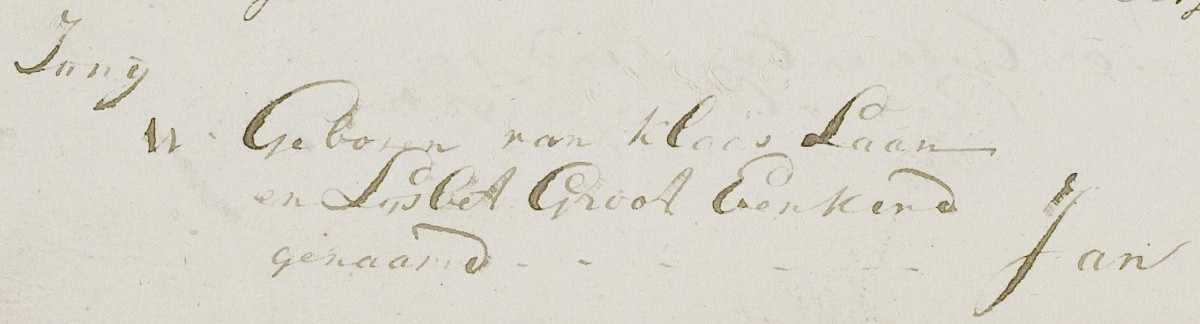 Juny
11 Geboren van Klaas Laan
en Lijsbet Groot Een kend
genaamd - - - - - Jan